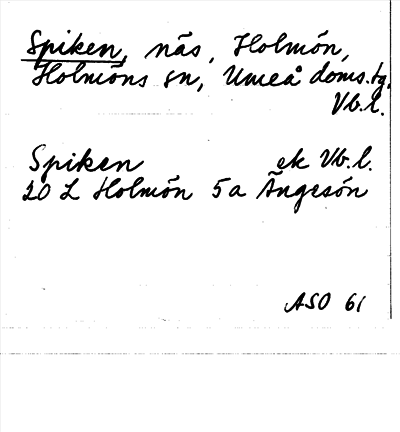 Spiken, näs, Holmön,
Holmöns sn, Umeå doms.tg,
Vb.l.
Spiken ek Vb.l.
20 L Holmön 5a Ängesön
ASO 61